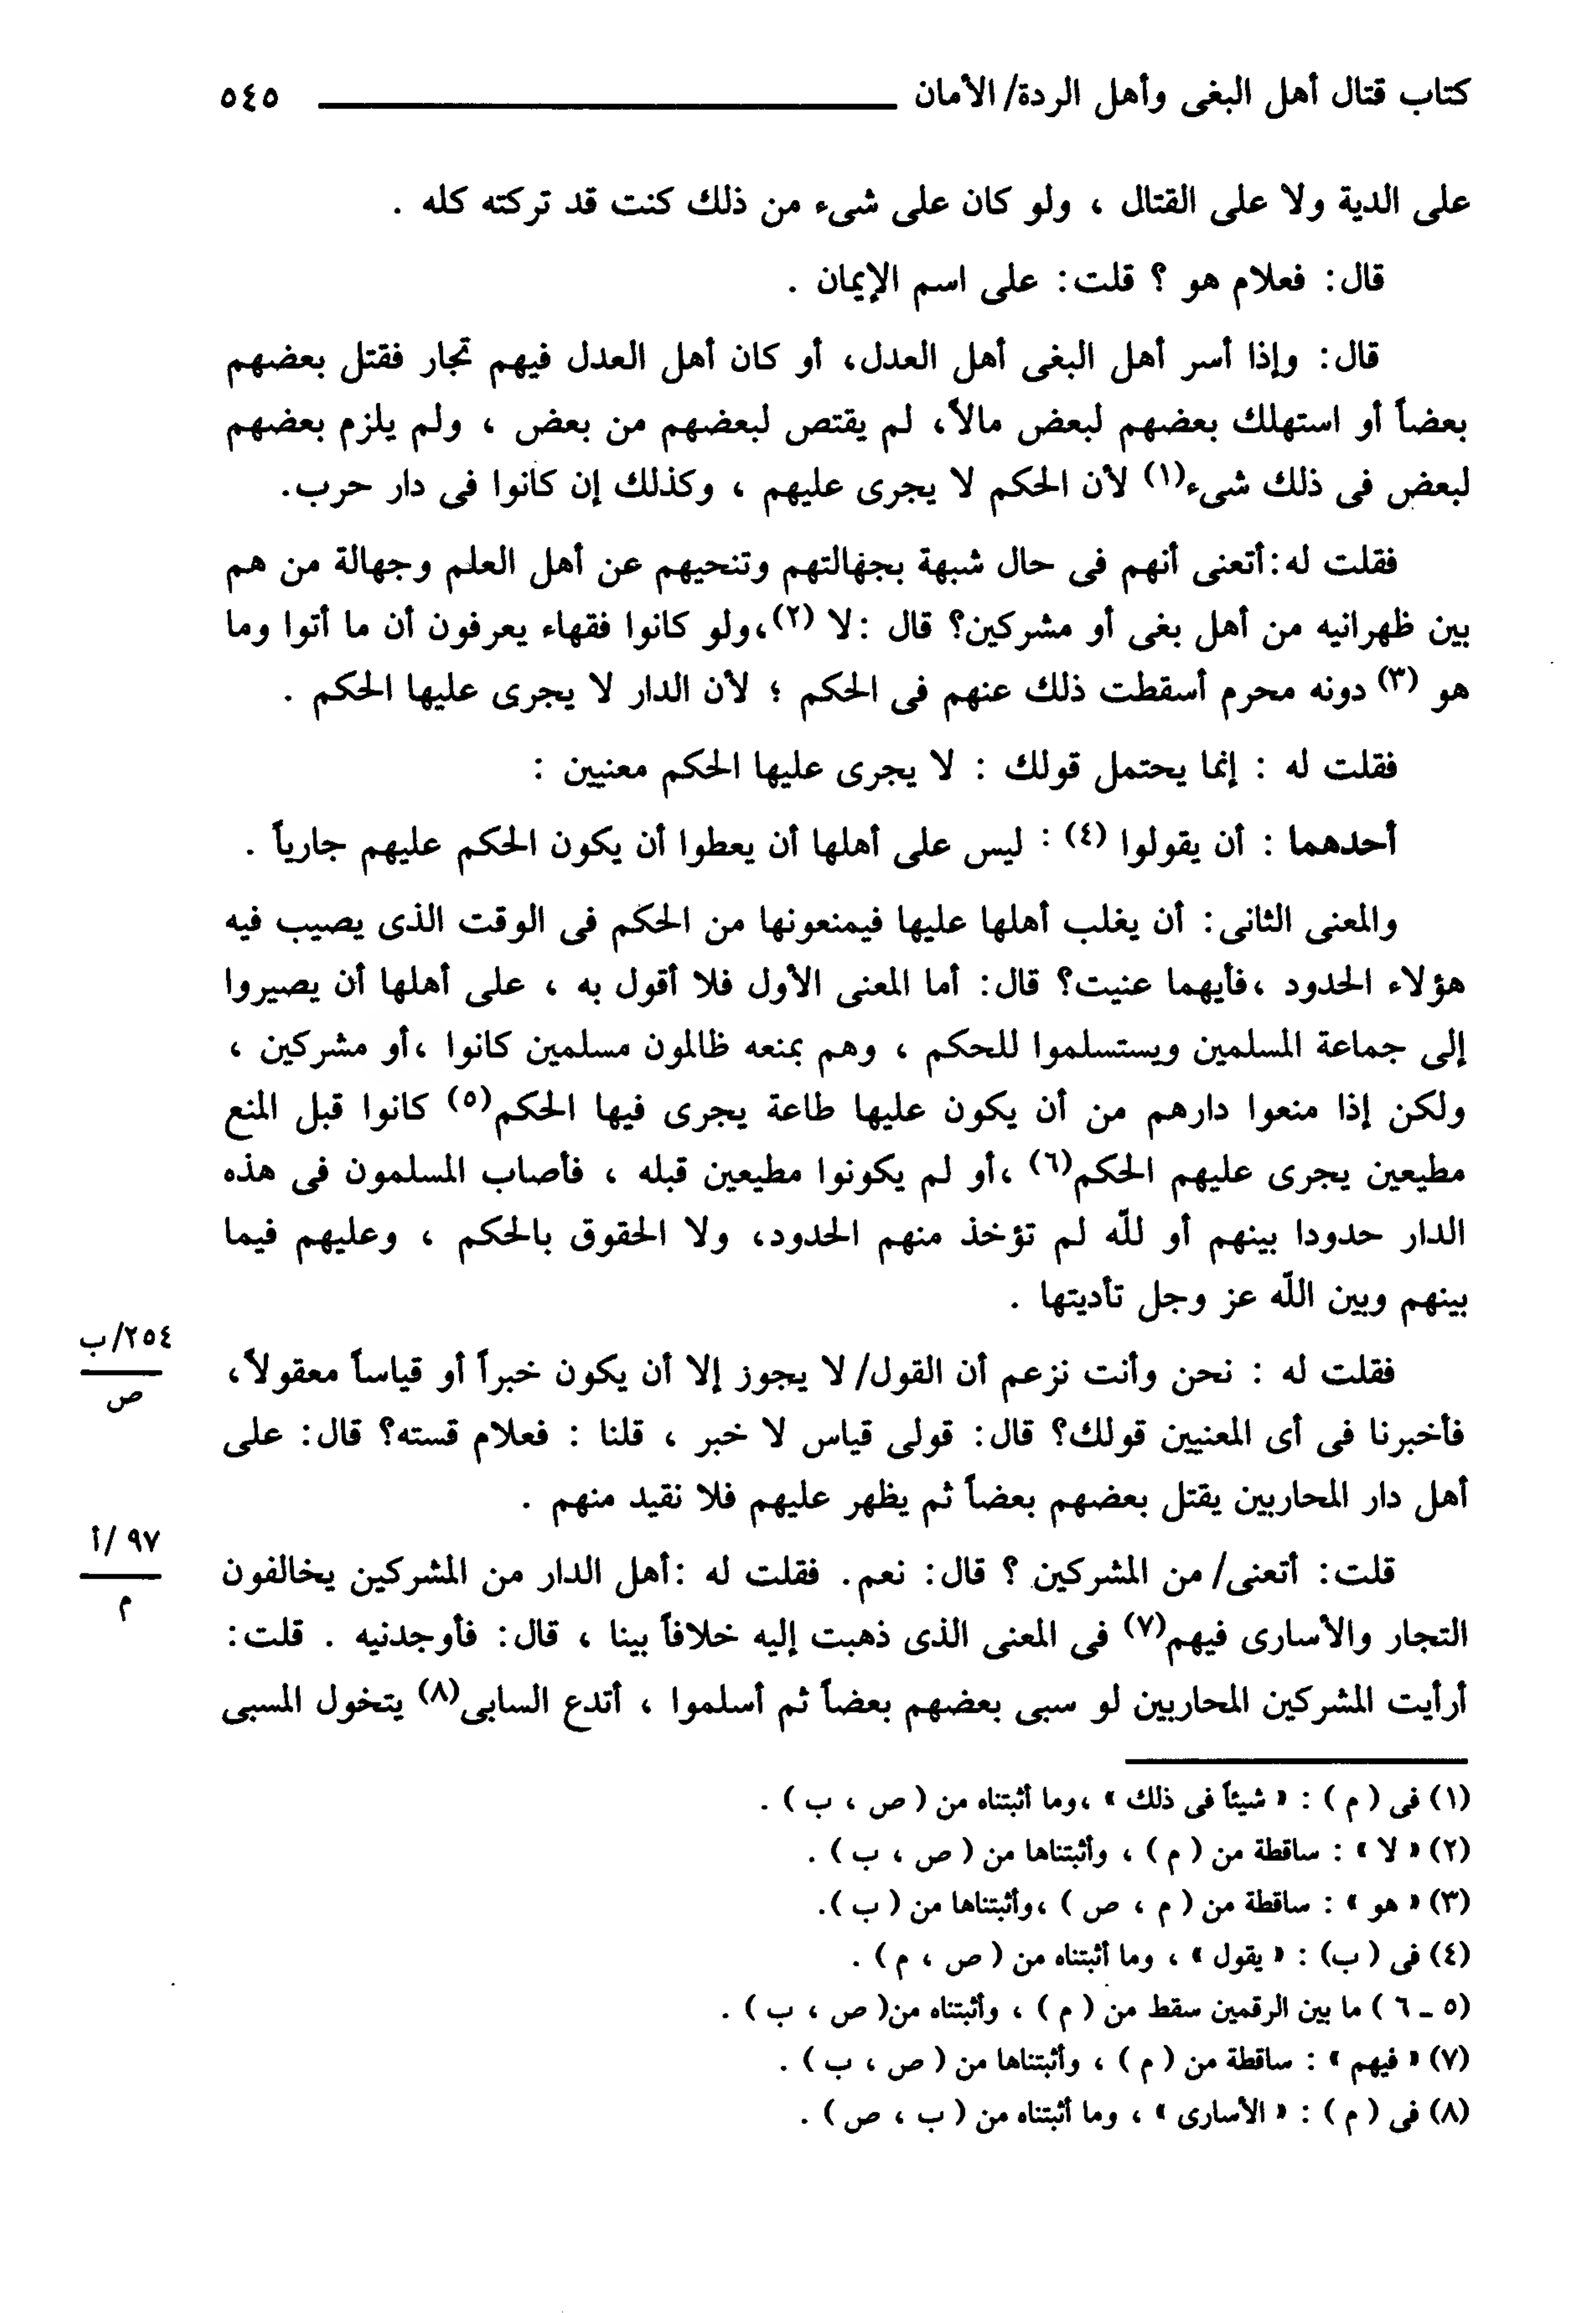 كتاب قتال أهل البغى وأهل الردة/ الأمان ٥٤٥
على الدية ولا على القتال ، ولو كان على شىء من ذلك كنت قد تركته كله .
قال: فعلام هو ؟ قلت: على اسم الإيمان .
قال: وإذا أسر أهل البغى أهل العدل، أو كان أهل العدل فيهم تجار فقتل بعضهم
بعضاً أو استهلك بعضهم لبعض مالاً، لم يقتص لبعضهم من بعض ، ولم يلزم بعضهم
لبعض فى ذلك شىء(١) لأن الحكم لا يجرى عليهم ، وكذلك إن كانوا فى دار حرب.
فقلت له:أتعنى أنهم فى حال شبهة بجهالتهم وتنحيهم عن أهل العلم وجهالة من هم
بين ظهرانيه من أهل بغى أو مشركين؟ قال :لا (٢)،ولو كانوا فقهاء يعرفون أن ما أتوا وما
هو (٣) دونه محرم أسقطت ذلك عنهم فى الحكم ؛ لأن الدار لا يجرى عليها الحكم .
فقلت له : إنما يحتمل قولك : لا يجرى عليها الحكم معنيين :
أحدهما : أن يقولوا (٤) : ليس على أهلها أن يعطوا أن يكون الحكم عليهم جارياً .
والمعنى الثانى: أن يغلب أهلها عليها فيمنعونها من الحكم فى الوقت الذى يصيب فيه
هؤلاء الحدود ،فأيهما عنيت؟ قال: أما المعنى الأول فلا أقول به ، على أهلها أن يصيروا
إلى جماعة المسلمين ويستسلموا للحكم ، وهم بمنعه ظالمون مسلمين كانوا ،أو مشركين ،
ولكن إذا منعوا دارهم من أن يكون عليها طاعة يجرى فيها الحكم(٥) كانوا قبل المنع
مطيعين يجرى عليهم الحكم(٦) ،أو لم يكونوا مطيعين قبله ، فأصاب المسلمون فى هذه
الدار حدودا بينهم أو لله لم تؤخذ منهم الحدود، ولا الحقوق بالحكم ، وعليهم فيما
بينهم وبين الله عز وجل تأديتها .
٢٥٤/ب
ص
فقلت له : نحن وأنت نزعم أن القول/ لا يجوز إلا أن يكون خبراً أو قياساً معقولاً،
فأخبرنا فى أى المعنيين قولك؟ قال: قولى قياس لا خبر ، قلنا : فعلام قسته؟ قال: على
أهل دار المحاربين يقتل بعضهم بعضاً ثم يظهر عليهم فلا نقيد منهم .
٩٧ /أ
م
قلت: أتعنى/ من المشركين ؟ قال: نعم. فقلت له :أهل الدار من المشركين يخالفون
التجار والأسارى فيهم(٧) فى المعنى الذى ذهبت إليه خلافاً بينا ، قال: فأوجدنيه . قلت:
أرأيت المشركين المحاربين لو سبى بعضهم بعضاً ثم أسلموا ، أتدع السابى(٨) يتخول المسبى
(١) فى ( م ) : « شيئاً فى ذلك » ،وما أثبتناه من ( ص ، ب ) .
(٢) « لا » : ساقطة من ( م ) ، وأثبتناها من ( ص ، ب ) .
(٣) « هو » : ساقطة من ( م ، ص ) ،وأثبتناها من ( ب ).
(٤) فى ( ب) : « يقول » ، وما أثبتناه من ( ص ، م ) .
(٥ - ٦ ) ما بين الرقمين سقط من ( م ) ، وأثبتناه من( ص ، ب ) .
(٧) « فيهم » : ساقطة من ( م ) ، وأثبتناها من ( ص ، ب ) .
(٨) فى ( م ) : « الأسارى » ، وما أثبتناه من ( ب ، ص ) .